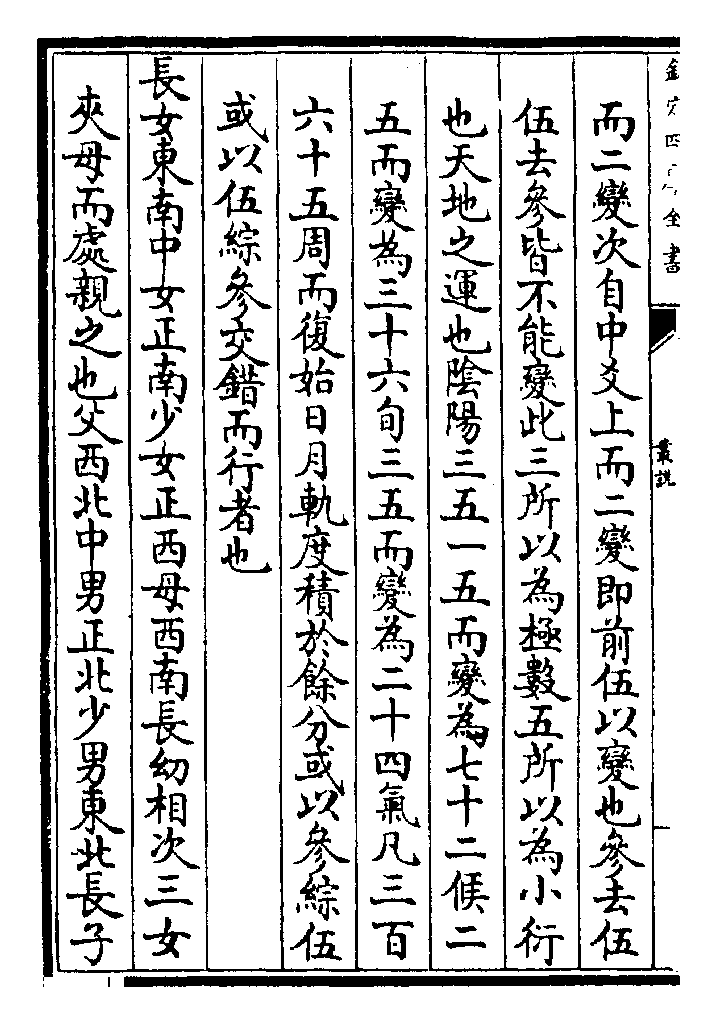 欽定四庫全書
叢説
而二變次自中爻上而二變即前伍以變也參去伍
伍去參皆不能變此三所以為極數五所以為小衍
也天地之運也陰陽三五一五而變為七十二候二
五而變為三十六旬三五而變為二十四氣凡三百
六十五周而復始日月軌度積於餘分或以參綜伍
或以伍綜參交錯而行者也
長女東南中女正南少女正西母西南長㓜相次三女
夾母而處親之也父西北中男正北少男東北長子